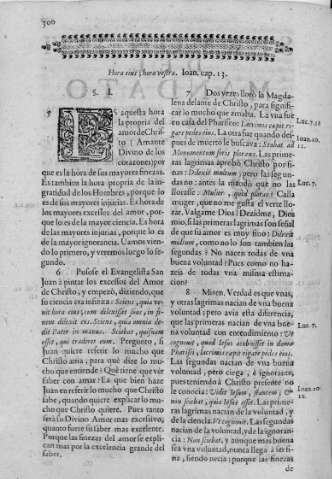 300
Hora eius; hora vestra. Ioan. cap. 13.
§. I.
5 Es aquesta hora
la propria del
amor de Chris-
to (Amante
Divino de los
corazones) por
que es la hora de sus mayores finezas.
Es tambien la hora propria de la in-
gratitud de los Hombres, porque lo
es de sus mayores injurias. Es hora de
los mayores excessos del amor, por-
que lo es de la mayor ciencia. Es hora
de las mayores injurias, porque lo es
de la mayor ignorancia. Vamos vien-
do lo primero, y veremos luego lo se-
gundo.
6 Pusose el Evangelista San
Joan à pintar los excessos del Amor
de Christo, y empezò, diziendo, que
su ciencia era infinita: Sciens, quia ve-
nit hora eius, cum dilexisset suos, in fi-
nem dilexit eos. Sciens, quia omnia de-
dit Pater in manus. Sciebat, quisnam
esset, qui traderet eum. Pregunto, si
Juan quiere referir lo mucho que
Christo ama, para què dize lo mu-
cho que entiende? Què tiene que vèr
saber con amar? Es que bien haze
Juan en referir lo mucho que Christo
sabe, quando quiere explicar lo mu-
cho que Christo quiere. Pues tanto
serà su Divino Amor mas excessivo,
quanto fuere su saber mas excelente.
Porque las finezas del amor se expli-
can mas por la excelencia grande del
saber.
7 Dos vezes llorò la Magda-
lena delante de Christo, para signifi-
car lo mucho que amaba. La vna fue
en casa del Phariseo: Lacrimis cœpit ri-
gare pedes eius. La otra fue quando des-
pues de muerto le buscava: Stabat ad
Monumentum foris plorans. Las prime-
ras lagrimas aprobò Christo por fi-
nas: Dilexit multum; pero las segun-
das no: antes la motejò que no las
llorasse: Mulier, quid ploras? Calla
muger, que no me gusta el verte llo-
rar. Valgame Dios! Dezidme, Dios
mio, si las primeras lagrimas son señal
de que su amor es muy fino: Dilexit
multum, como no lo son tambien las
segundas? No nacen todas de vna
buena voluntad? Pues como no ha-
zeis de todas vna misma estima-
cion?
8 Miren. Verdad es que vnas,
y otras lagrimas nacian de vna buena
voluntad; pero avia esta diferencia,
que las primeras nacian de vna bue-
na voluntad con entendimiento: Vt
cognovit, quod Iesus accubuisset in domo
Pharisæi, lacrimis cœpit rigare pedes eius.
Las segundas nacian de vna buena
voluntad, pero ciega, è ignorante,
pues teniendo à Christo presente no
le conocia: Vidit Iesum, stantem, &
non sciebat, quia Iesus esset. Las prime-
ras lagrimas nacian de la voluntad, y
de la ciencia: Vt cognovit. Las segun-
das nacian de la voluntad, y de la igno-
rancia: Non sciebat, y aunque mas buena
sea vna voluntad, nunca llega à ser fi-
na, siendo necia; porque las finezas
de
Luc. 7.
Luc. 7.
Luc. 7.